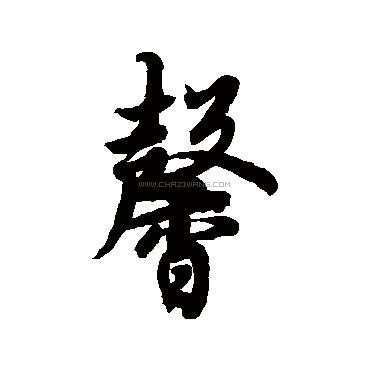 馨
WWW.CHAZIWANG.COM